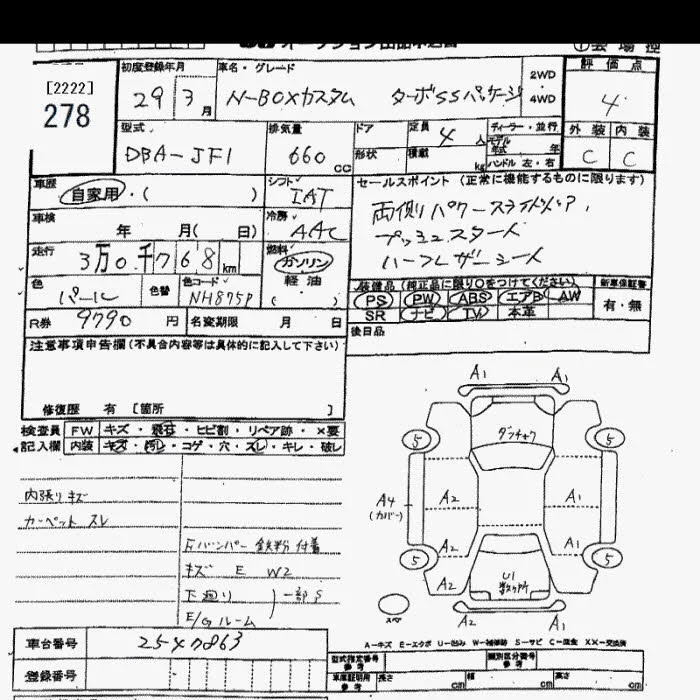 [2222]
278
初度登録年月
29年 3月
車名・グレード
N-BOXカスタム ターボSSパッケージ
2WD
・
4WD
評価点
4
外装 内装
C C
型式
DBA-JF1
排気量
660 cc
ドア
形状
定員 4 人
積載 kg
ディーラー・並行
モデル
年式 年
ハンドル 左・右
車歴
自家用・( )
シフト
IAT
車検
年 月( 日)
冷房
AAC
走行
3万0千768km
燃料
ガソリン
軽油
( )
色
パール
色替
色コード
NH875P
R券 9790 円
名変期限 月 日
セールスポイント (正常に機能するものに限ります)
両側パワースライドドア,
プッシュスタート
ハーフレザーシート
装備品 (純正品に限り○をつけてください)
PS PW ABS エアB AW
SR ナビ TV 本革
新車保証書
有・無
後日品
注意事項申告欄(不具合内容等は具体的に記入して下さい)
修復歴 有 [箇所 ]
検査員 FW キズ・飛石・ヒビ割・リペア跡・×要
記入欄 内装 キズ・汚レ・コゲ・穴・スレ・キレ・破レ
内張りキズ
カーペット スレ
Fバンパー 鉄粉 付着
キズ E W2
下廻り 一部S
E/Gルーム
A1 A1
5 5
ダンチャク
A4
(カバー)
A2 A1
A2 A1
5 5
A2
U1
数ヶ所
スペア
A1 A1
車台番号 2547863
登録番号
A-キズ E-エクボ U-凹み W-補修跡 S-サビ C-腐食 XX-交換済
型式指定番号
参考
類別区分番号
参考
車庫証明用
参考
長さ cm 幅 cm 高さ cm